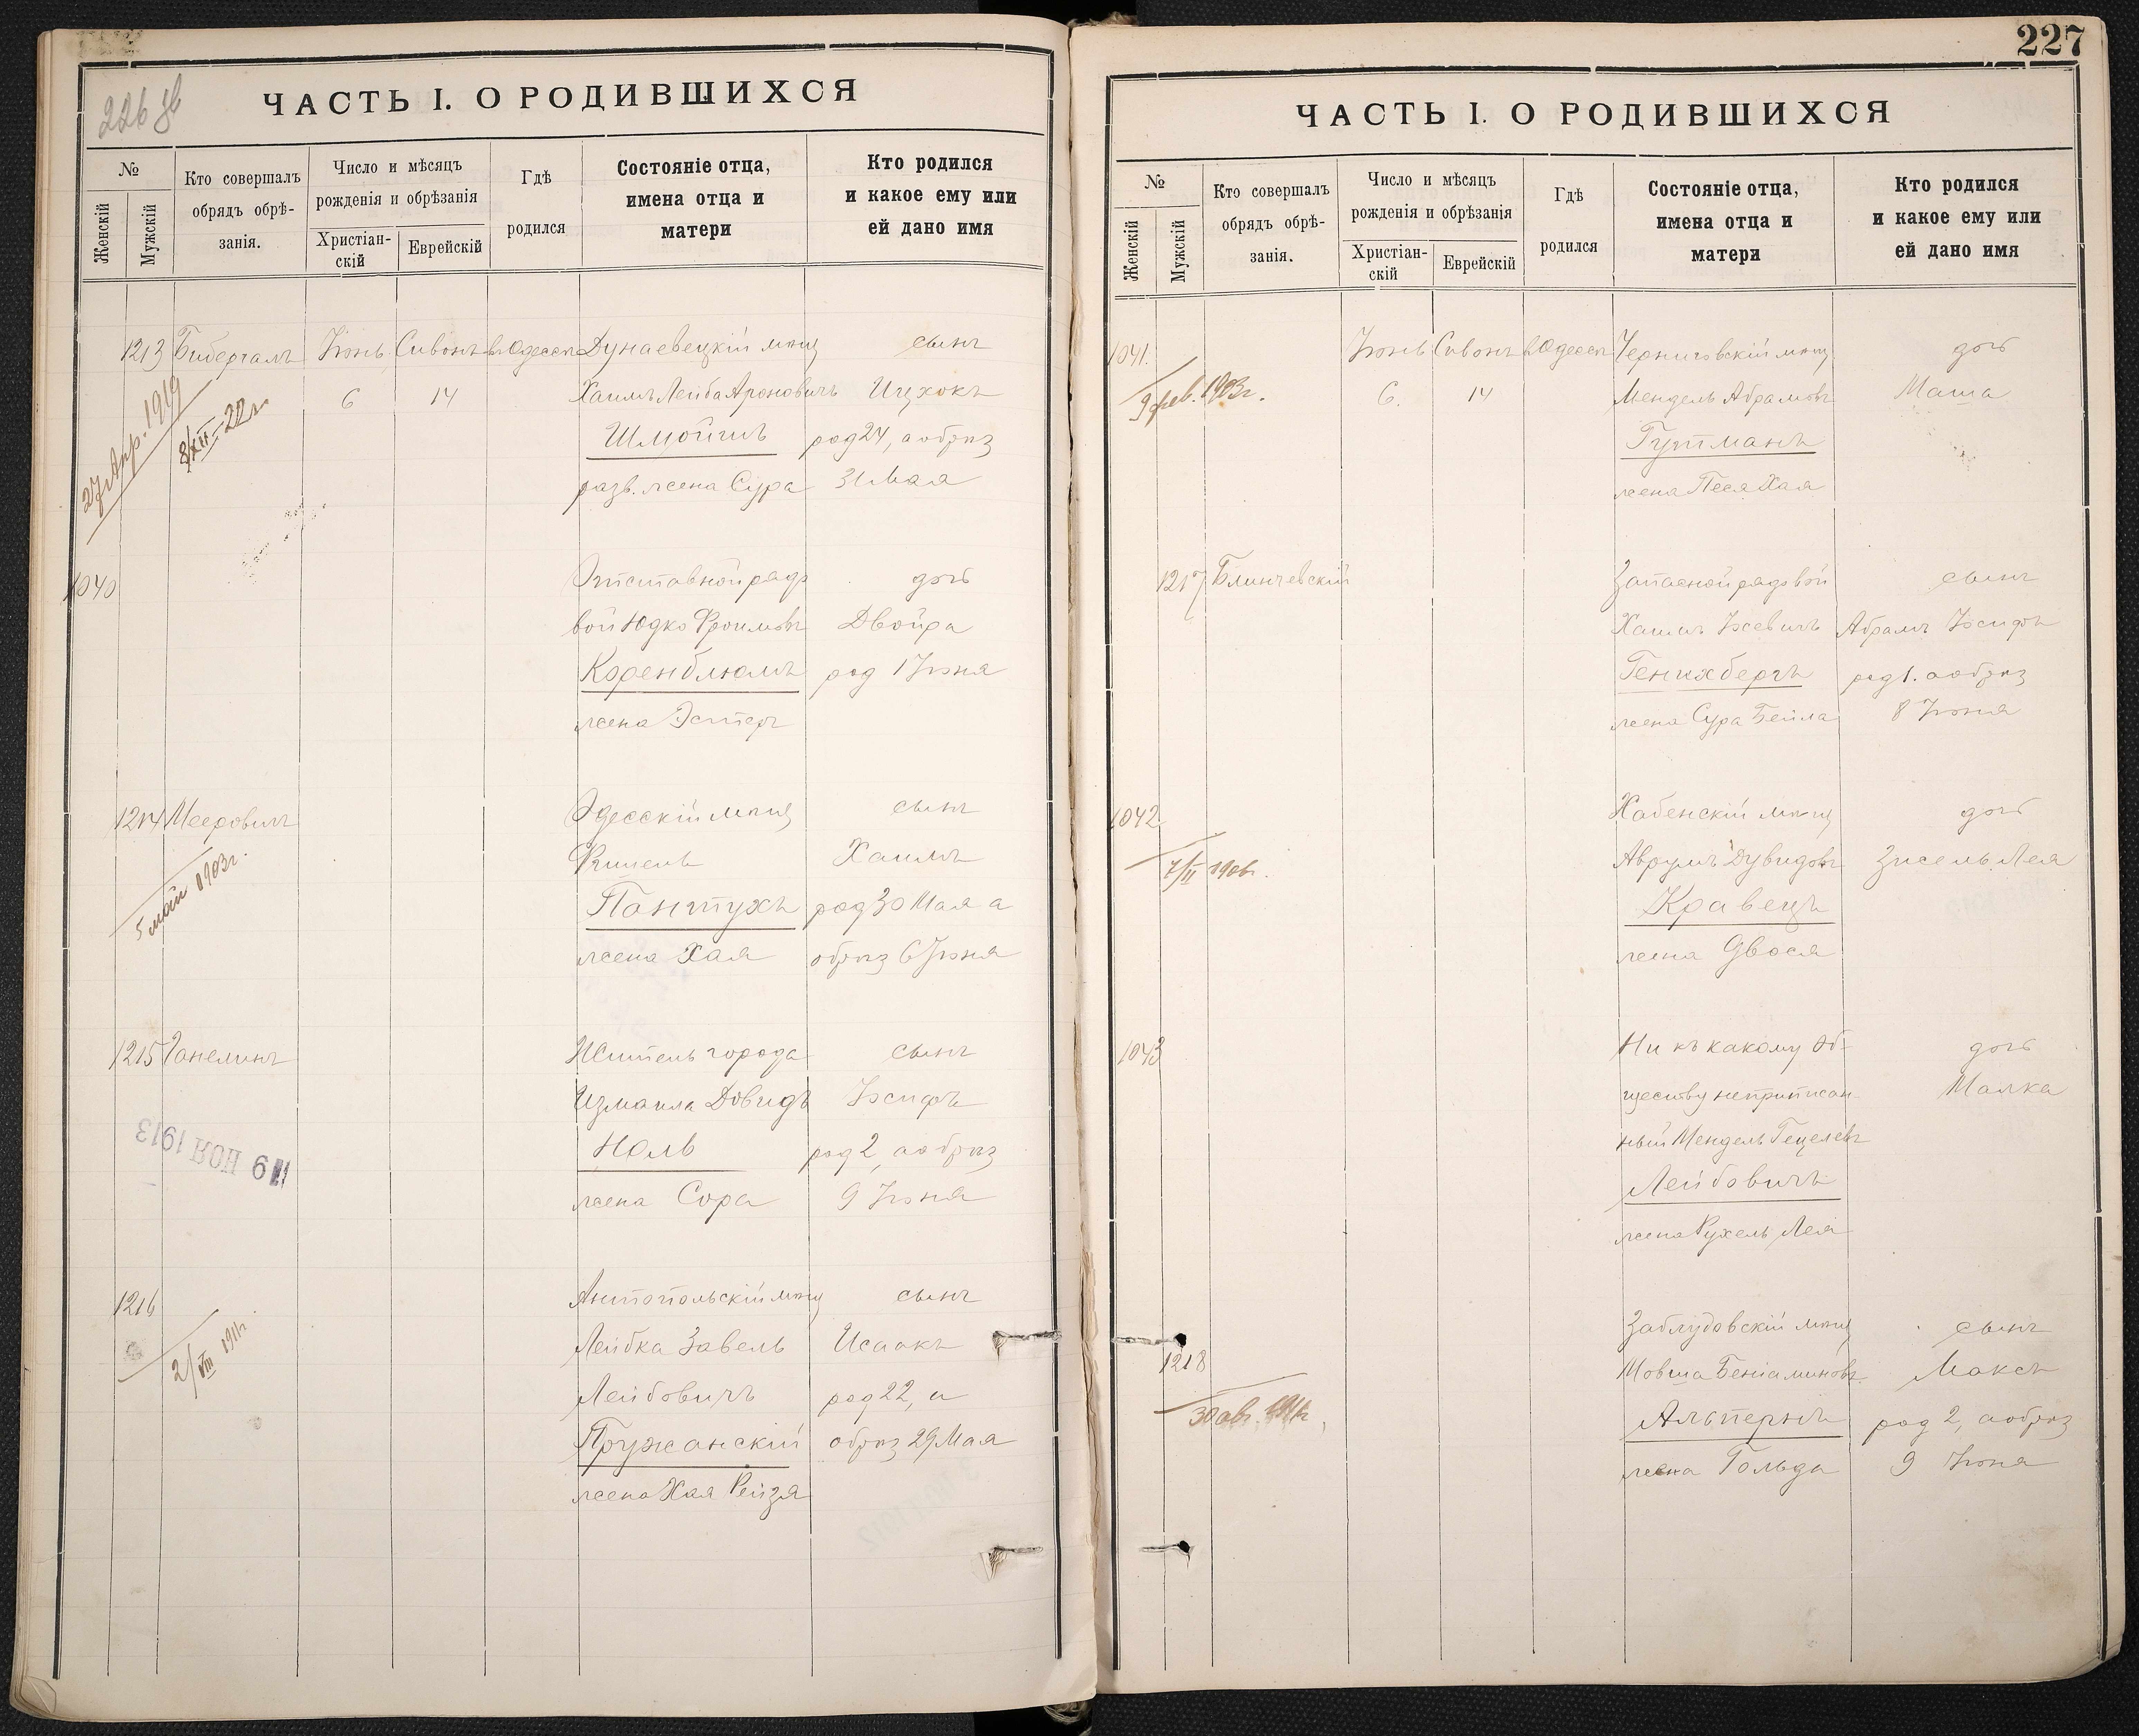 226 об
ЧАСТЬ I. О РОДИВШИХСЯ
№
Женскій
Мужскій
Кто совершалъ
обрядъ обрѣ-
занія.
Число и мѣсяцъ
рожденія и обрѣзанія
Христіан-
скій
Еврейскій
Гдѣ
родился
Состояніе отца,
имена отца и
матери
Кто родился
и какое ему или
ей дано имя
1213 Бибергалъ Іюнь Сивонъ в Одессѣ Дунаевецкій мѣщ сынъ
27 Апр. 1919
8/XII-22 г.
6 14 Хаимъ Лейба Ароновичъ Ицхокъ
Шмойшъ род 24, а обрѣз
разв. жена Сура 31 Мая
1040 Отставной рядо дочь
вой Юдко Фроимовъ Двойра
Коренблюмъ род 1 Іюня
жена Эстеръ
1214 Мееровичъ Одесскій мѣщ сынъ
5 май 1903 г.
Фишель Хаимъ
Пантухъ род 30 Мая а
жена Хая обрѣз 6 Іюня
1215 Ганелинъ Житель города сынъ
Измаила Довидъ Іосифъ
19 НОЯ 1913
Ноль род 2, а обрѣз
жена Сора 9 Іюня
1216 Антопольскій мѣщ сынъ
2/VIII 1911 г.
Лейбка Завель Исаакъ
Лейбовичъ род 22, а
Пружанскій обрѣз 29 Мая
жена Хая Рейзя
227
ЧАСТЬ I. О РОДИВШИХСЯ
№
Женскій
Мужскій
Кто совершалъ
обрядъ обрѣ-
занія.
Число и мѣсяцъ
рожденія и обрѣзанія
Христіан-
скій
Еврейскій
Гдѣ
родился
Состояніе отца,
имена отца и
матери
Кто родился
и какое ему или
ей дано имя
1041. Іюнь Сивонъ в Одессѣ Черниговскій мѣщ дочь
9 фев. 1903 г. 6. 14 Мендель Абрамовъ Маша
Гутманъ
жена Песя Хая
1217 Блинчевскій Запасной рядовой сынъ
Хаимъ Іосевичъ Абрамъ Іосифъ
Генихбергъ род 1. а обрѣз
жена Сура Бейла 8 Іюня
1042 Хабенскій мѣщ дочь
7/II 190 г. Аврумъ Дувидовъ Зисель Лея
Кравецъ
жена Двося
1043 Ни къ какому об- дочь
ществу неприписан- Малка
ный Мендель Гецелевъ
Лейбовичъ
жена Рухель Лея
Заблудовскій мѣщ сынъ
1218 Мовша Беніаминовъ Максъ
30 авг. 1911 г. Альпернъ род 2, а обрѣз
жена Гольда 9 Іюня